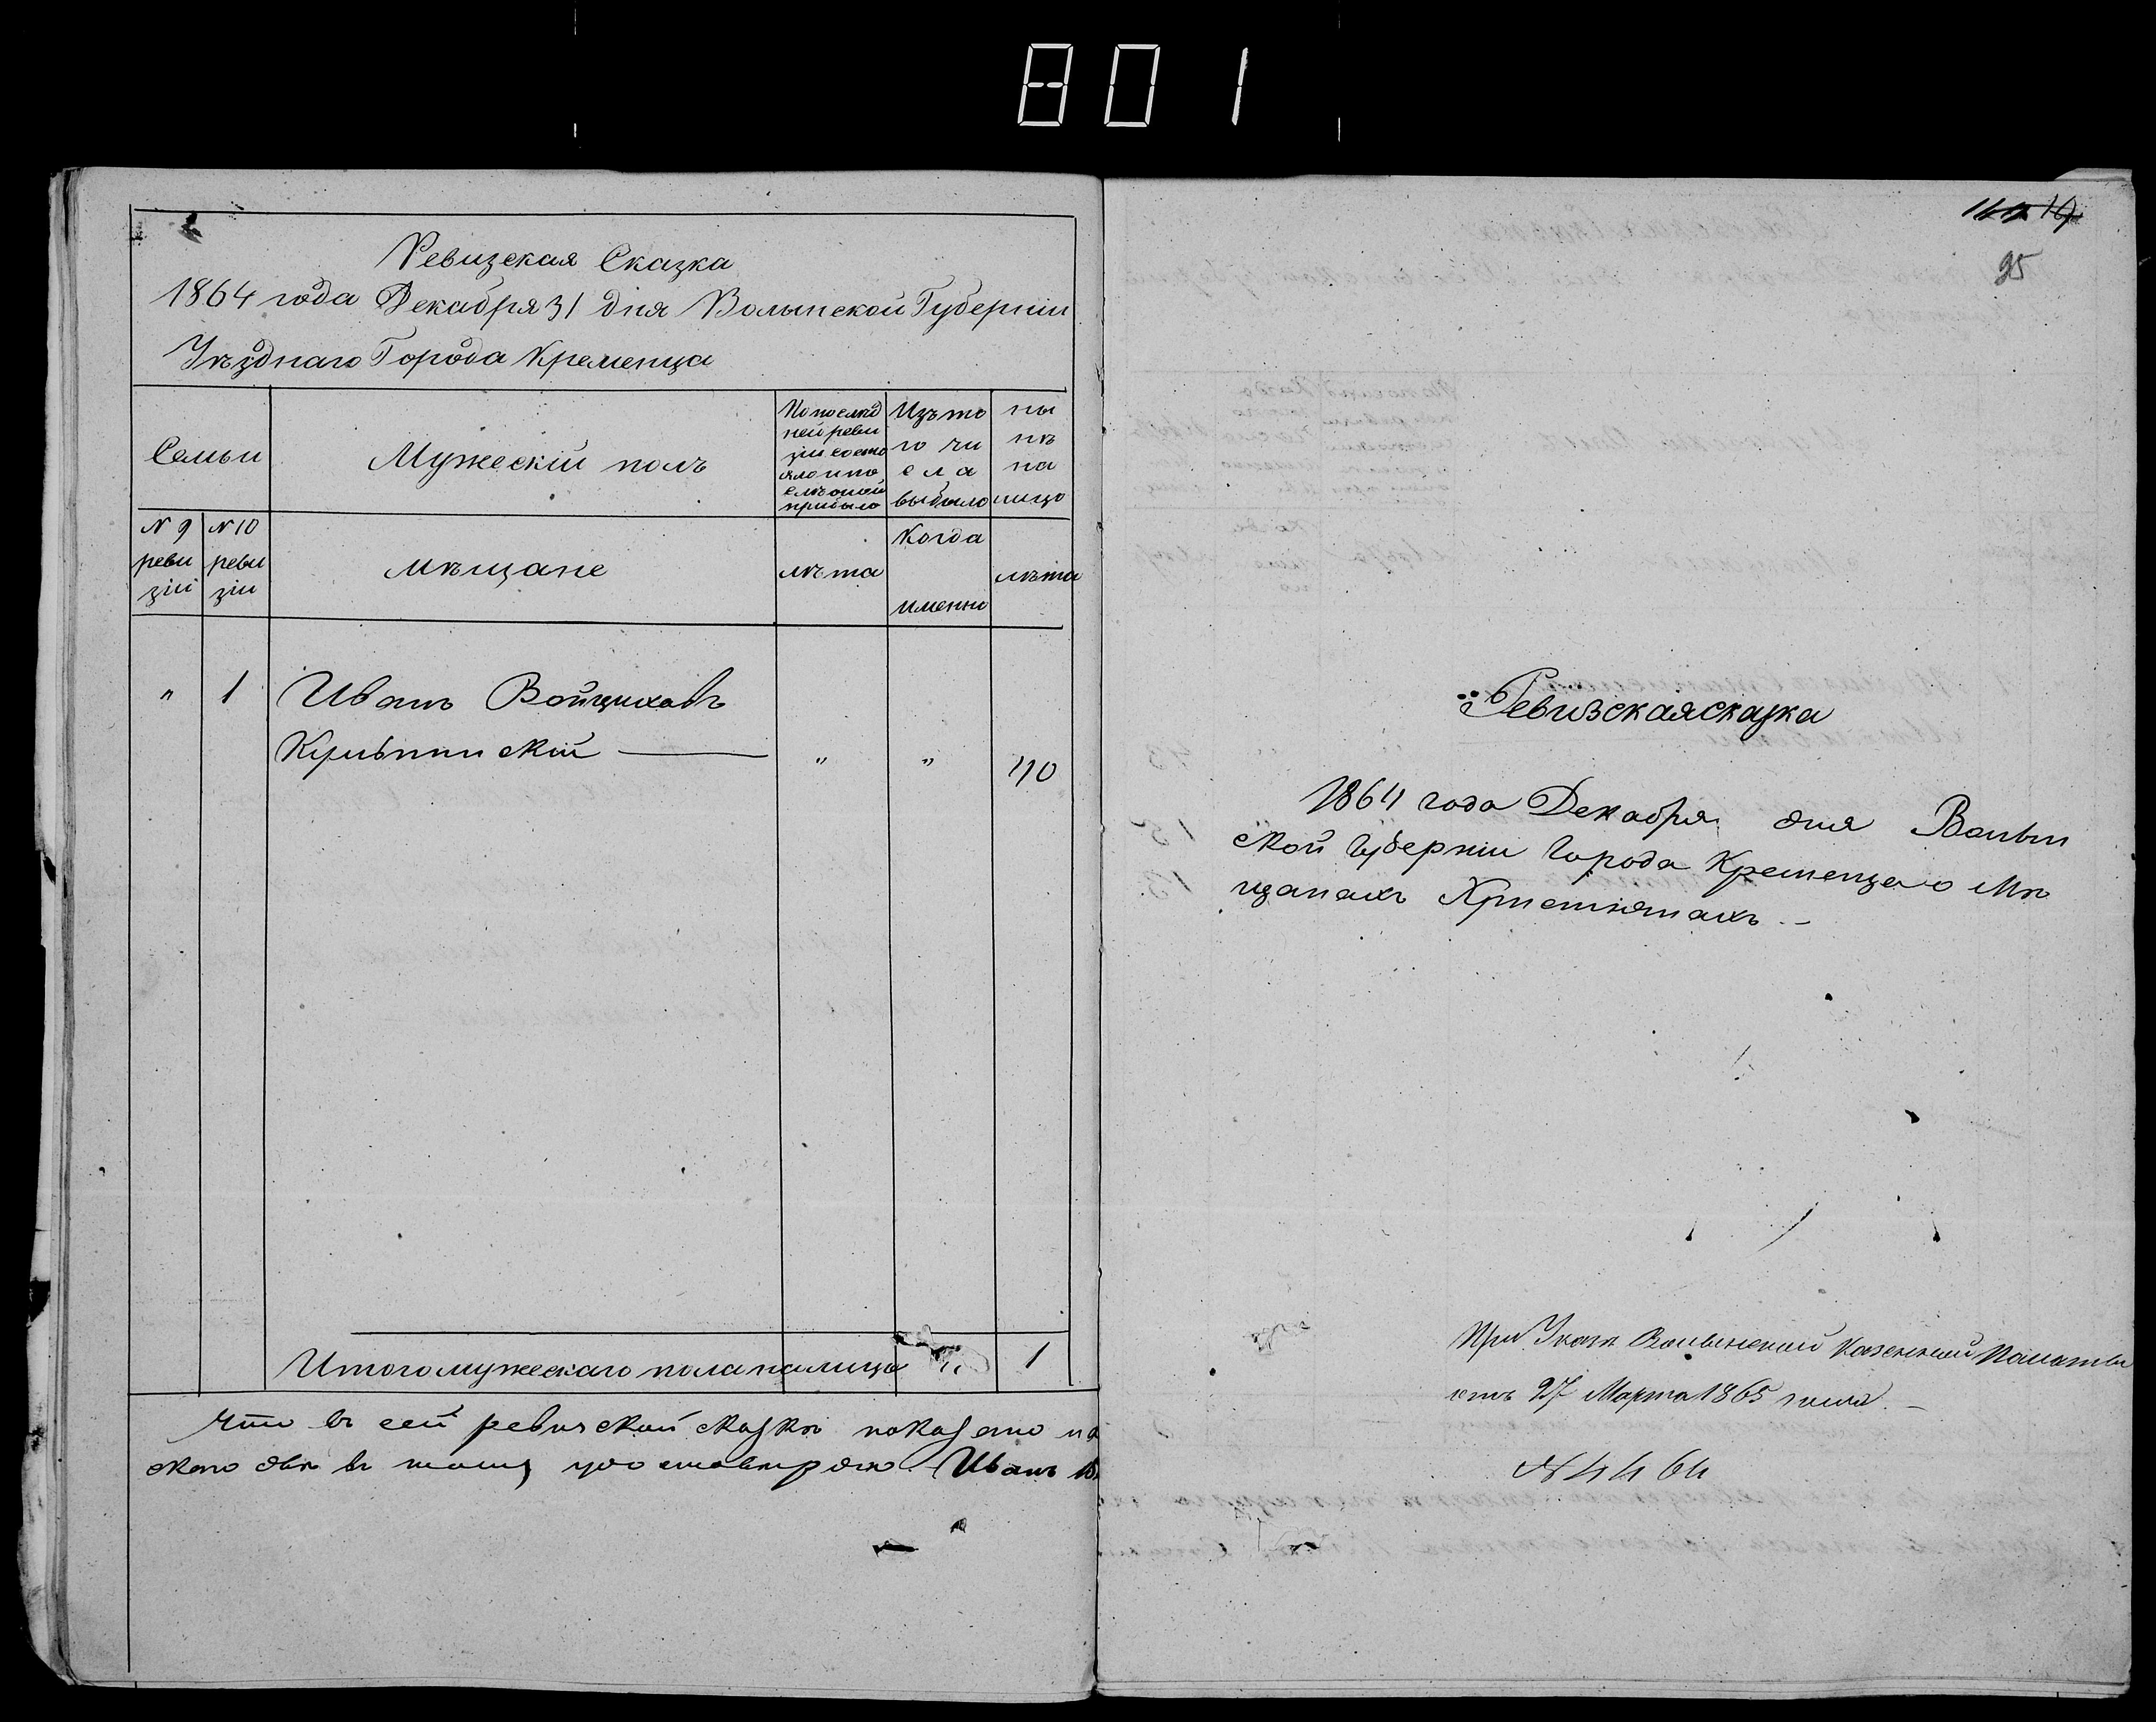 801
Ревизская Сказка
1864 года Декабря 31 дня Волынской Губерніи
Уѣзднаго Города Кременца
Семьи
Мужескій полъ
По послѣд
ней реви
зіи состо
яло и по
слѣ оной
прибыло
Изъ то
го чи
сла
выбыло
ны
нѣ
на
лицо
N 9
реви
зіи
N 10
реви
зіи
Мѣщане
лѣта
Когда
именно
лѣта
" 1 Иванъ Войцеховъ
" " 40
Итого мужескаго пола налицо " 1
Что въ сей ревизской сказкѣ показано
въ томъ удостовѣряю Иванъ
19
95
Ревизская сказка
1864 года Декабря дня Волын
ской Губерніи Города Кременца о Мѣ
щанахъ Христіянахъ
При Указѣ Волынской Казенной Палаты
отъ 27 Марта 1865 года
№ 4464